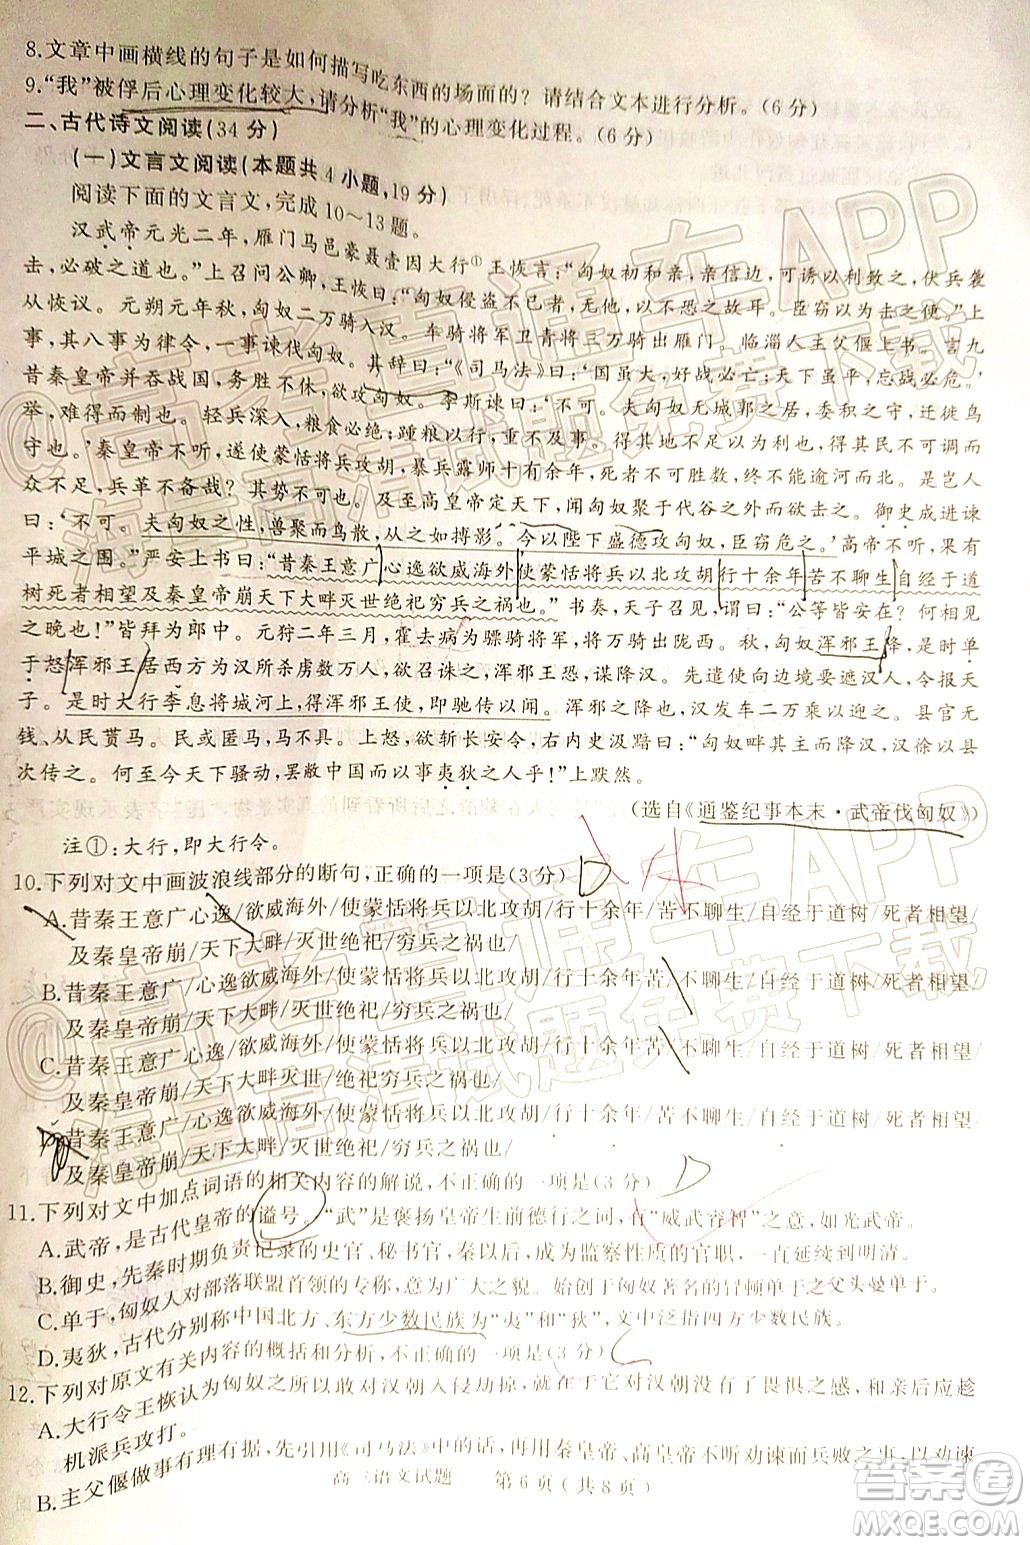 8.文章中画横线的句子是如何描写吃东西的场面的？请结合文本进行分析。(6分)
9.“我”被俘后心理变化较大，请分析“我”的心理变化过程。(6分)
二、古代诗文阅读(34分)
(一)文言文阅读(本题共4小题,19分)
阅读下面的文言文，完成10～13题。
汉武帝元光二年，雁门马邑豪聂壹因大行①王恢言：“匈奴初和亲，亲信边，可诱以利致之，伏兵袭
击，必破之道也。”上召问公卿，王恢曰：“匈奴侵盗不已者，无他，以不恐之故耳。臣窃以为击之便。”上
从恢议。元朔元年秋，匈奴二万骑入汉。车骑将军卫青将三万骑出雁门。临淄人主父偃上书。言九
事，其八事为律令，一事谏伐匈奴。其辞曰：“《司马法》曰：‘国虽大，好战必亡；天下虽平，忘战必危。’
昔秦皇帝并吞战国，务胜不休，欲攻匈奴。李斯谏曰：‘不可。夫匈奴无城郭之居，委积之守，迁徙鸟
举，难得而制也。轻兵深入，粮食必绝；踵粮以行，重不及事。得其地不足以为利也，得其民不可调而
守也。’秦皇帝不听，遂使蒙恬将兵攻胡，暴兵露师十有余年，死者不可胜数，终不能逾河而北。是岂人
众不足，兵革不备哉？其势不可也。及至高皇帝定天下，闻匈奴聚于代谷之外而欲击之。御史成进谏
曰：‘不可。夫匈奴之性，兽聚而鸟散，从之如搏影。今以陛下盛德攻匈奴，臣窃危之。’高帝不听，果有
平城之围。”严安上书曰：“昔秦王意广心逸欲威海外使蒙恬将兵以北攻胡行十余年苦不聊生自经于道
树死者相望及秦皇帝崩天下大畔灭世绝祀穷兵之祸也。”书奏，天子召见，谓曰：“公等皆安在？何相见
之晚也！”皆拜为郎中。元狩二年三月，霍去病为骠骑将军，将万骑出陇西。秋，匈奴浑邪王降，是时单
于怒浑邪王居西方为汉所杀虏数万人，欲召诛之，浑邪王恐，谋降汉。先遣使向边境要遮汉人，令报天
子。是时大行李息将城河上，得浑邪王使，即驰传以闻。浑邪之降也，汉发车二万乘迎之。县官无
钱、从民贳马。民或匿马，马不具。上怒，欲斩长安令，右内史汲黯曰：“匈奴畔其主而降汉，汉徐以县
次传之。何至令天下骚动，罢敝中国而以事夷狄之人乎！”上默然。
(选自《通鉴纪事本末·武帝伐匈奴》)
注①：大行，即大行令。
10.下列对文中画波浪线部分的断句，正确的一项是(3分) D
A.昔秦王意广心逸/欲威海外/使蒙恬将兵以北攻胡/行十余年/苦不聊生/自经于道树/死者相望/
及秦皇帝崩/天下大畔/灭世绝祀/穷兵之祸也/
B.昔秦王意广/心逸欲威海外/使蒙恬将兵以北攻胡/行十余年苦/不聊生/自经于道树/死者相望/
及秦皇帝崩/天下大畔/灭世绝祀/穷兵之祸也/
C.昔秦王意广心逸/欲威海外/使蒙恬将兵以北攻胡/行十余年苦/不聊生/自经于道树/死者相望/
及秦皇帝崩/天下大畔灭世/绝祀/穷兵之祸也/
D.昔秦王意广/心逸欲威海外/使蒙恬将兵以北攻胡/行十余年/苦不聊生/自经于道树/死者相望/
及秦皇帝崩/天下大畔/灭世绝祀/穷兵之祸也/
11.下列对文中加点词语的相关内容的解说，不正确的一项是(3分) D
A.武帝，是古代皇帝的谥号。“武”是褒扬皇帝生前德行之词，有“威武睿智”之意，如光武帝。
B.御史，先秦时期负责记录的史官、秘书官，秦以后，成为监察性质的官职，一直延续到明清。
C.单于，匈奴人对部落联盟首领的专称，意为广大之貌。始创于匈奴著名的冒顿单于之父头曼单于。
D.夷狄，古代分别称中国北方、东方少数民族为“夷”和“狄”，文中泛指四方少数民族。
12.下列对原文有关内容的概括和分析，不正确的一项是(3分) C
A.大行令王恢认为匈奴之所以敢对汉朝侵扰劫掠，就在于他们对汉朝没有了畏惧之感，和亲后应趁
机派兵攻打。
B.主父偃做事有理有据，先引用《司马法》中的话，再用秦皇帝、高皇帝不听劝谏而惨遭失败，以劝谏
高三语文试题 第6页(共8页)
@高考直通车APP
海量高清试题免费下载
@高考直通车APP
海量高清试题免费下载
答案圈
MXQE.COM